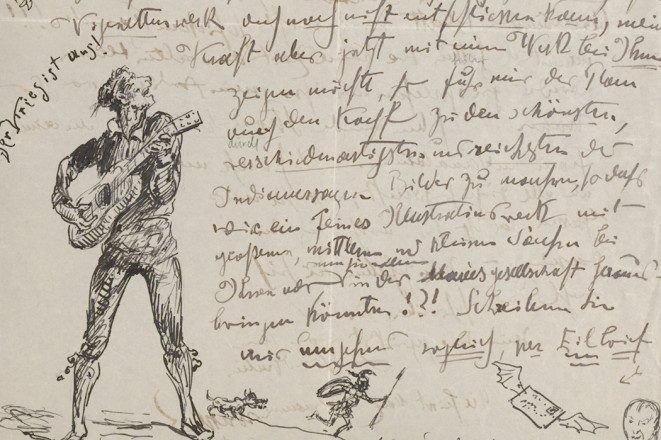 Der Krieg ist aus!
Vignettenwerk auch noch nicht entschließen kann, mein
Kraft aber jetzt mit einem Werk bei Ihnen
zeigen möchte, so fuhr mir der Plan
durch den Kopf zu den schönsten,
durch
verschiedenartigsten und reichsten der
Indianersagen Bilder zu machen, so daß
wir ein feines Illustrationswerk mit
großen, mittlern und kleinen Sachen bei
Ihnen oder in der gesellschaft heraus
bringen könnten!?! Schreiben Sie
mir umgehend sogleich, per Eilbrief